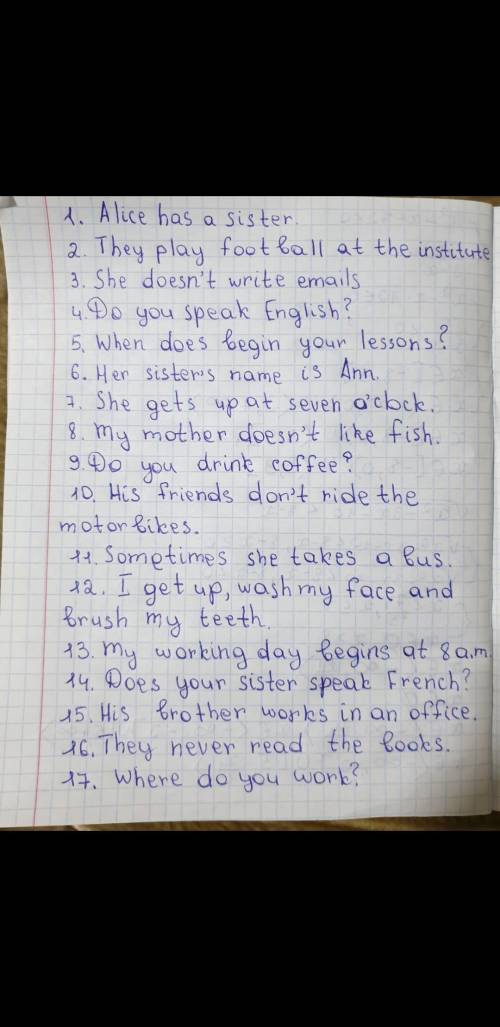 1. Alice has a sister.
2. They play football at the institute
3. She doesn't write emails
4. Do you speak English?
5. When does begin your lessons?
6. Her sister's name is Ann.
7. She gets up at seven o'clock.
8. My mother doesn't like fish.
9. Do you drink coffee?
10. His friends don't ride the
motorbikes.
11. Sometimes she takes a bus.
12. I get up, wash my face and
brush my teeth.
13. My working day begins at 8 a.m.
14. Does your sister speak French?
15. His brother works in an office.
16. They never read the books.
17. Where do you work?